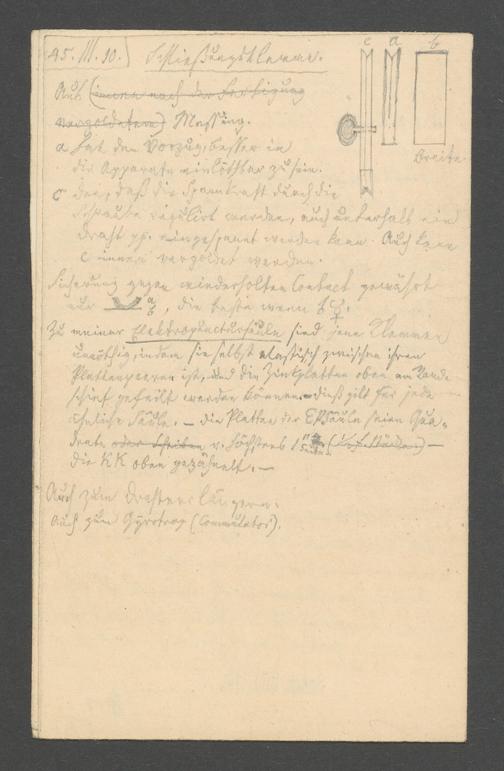 45. III. 10.) Schließungsklemme.
c a b
Aus (immer nach der Fertigung
vergoldetem) Messing.
Breite
a hat den Vorzug, besser in
die Apparate einlöthbar zu sein.
c den, daß die Spannkraft durch die
Schraube regulirt werden, auch unterhalb ein
Draht pp. eingespannt werden kann. Auch kann
c innen vergoldet werden.
Sicherung gegen wiederholten Contact gewährt
nur a b, die beste wenn
Zu meiner Elektropunctursäule sind jene Klemmen
unnöthig, indem sie selbst elastisch zwischen ihren
Plattenpaaren ist, und die Zinkplatten oben am Rande
schief gefeilt werden können. – dieß gilt für jede
ähnliche Säule. – die Platten der EPSäule seien Qua-
drate oder Scheiben v. höchstens 1"
die KK oben gezähnelt. –
Auch zum Drahtverlängern.
Auch zum Gyrotrop (Commutator).